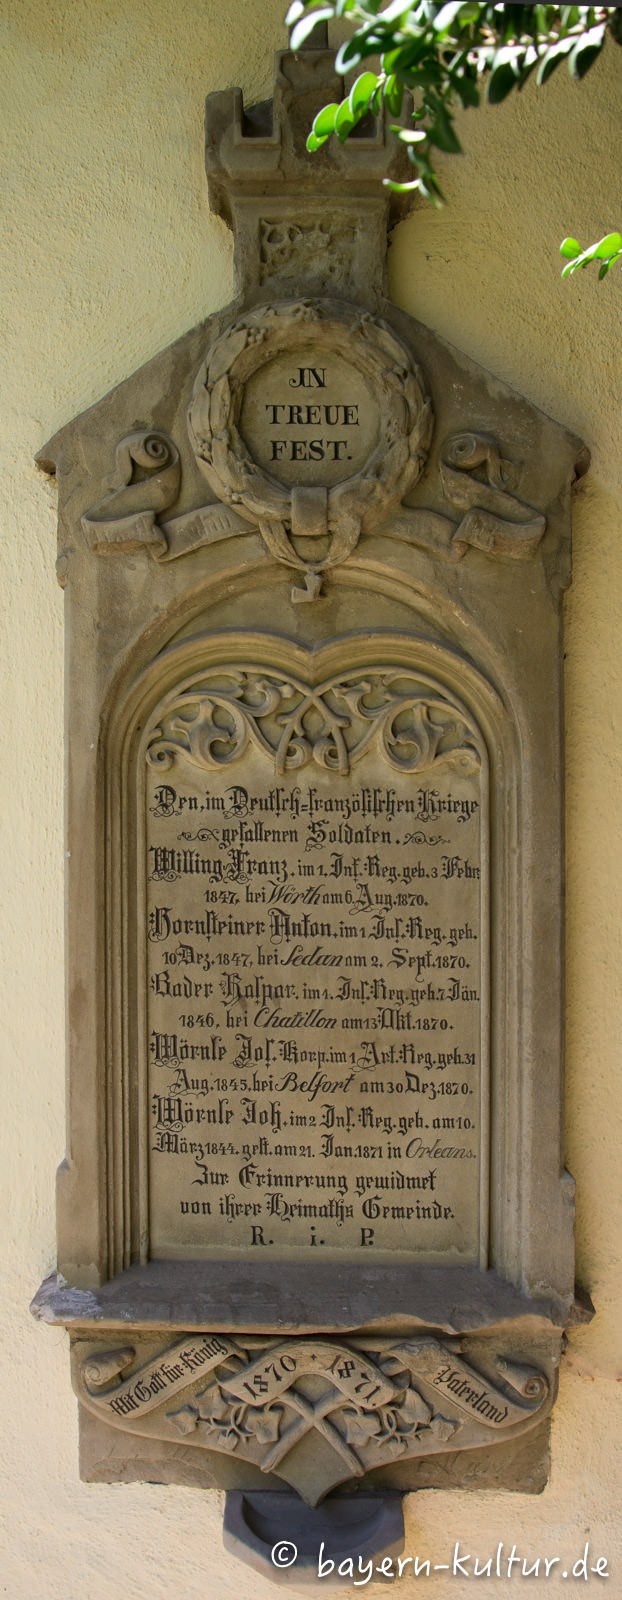 IN
TREUE
FEST.
Den, im Deutsch=französischen Kriege
gefallenen Soldaten.
Willing Franz, im 1. Inf. Reg. geb. 3 Febr.
1847, bei Wörth am 6. Aug. 1870.
Hornsteiner Anton, im 1 Inf. Reg. geb.
10 Dez. 1847, bei Sedan am 2. Sept. 1870.
Bader Kaspar, im 1. Inf. Reg. geb. 7 Jän.
1846, bei Chatillon am 13 Okt. 1870.
Wörnle Jos. Korp. im 1 Art. Reg. geb. 31
Aug. 1845, bei Belfort am 30 Dez. 1870.
Wörnle Joh. im 2 Inf. Reg. geb. am 10.
März 1844. gest. am 21. Jan. 1871 in Orleans.
Zur Erinnerung gewidmet
von ihrer Heimaths Gemeinde.
R. i. P.
Mit Gott für König 1870 · 1871. Vaterland
© bayern-kultur.de